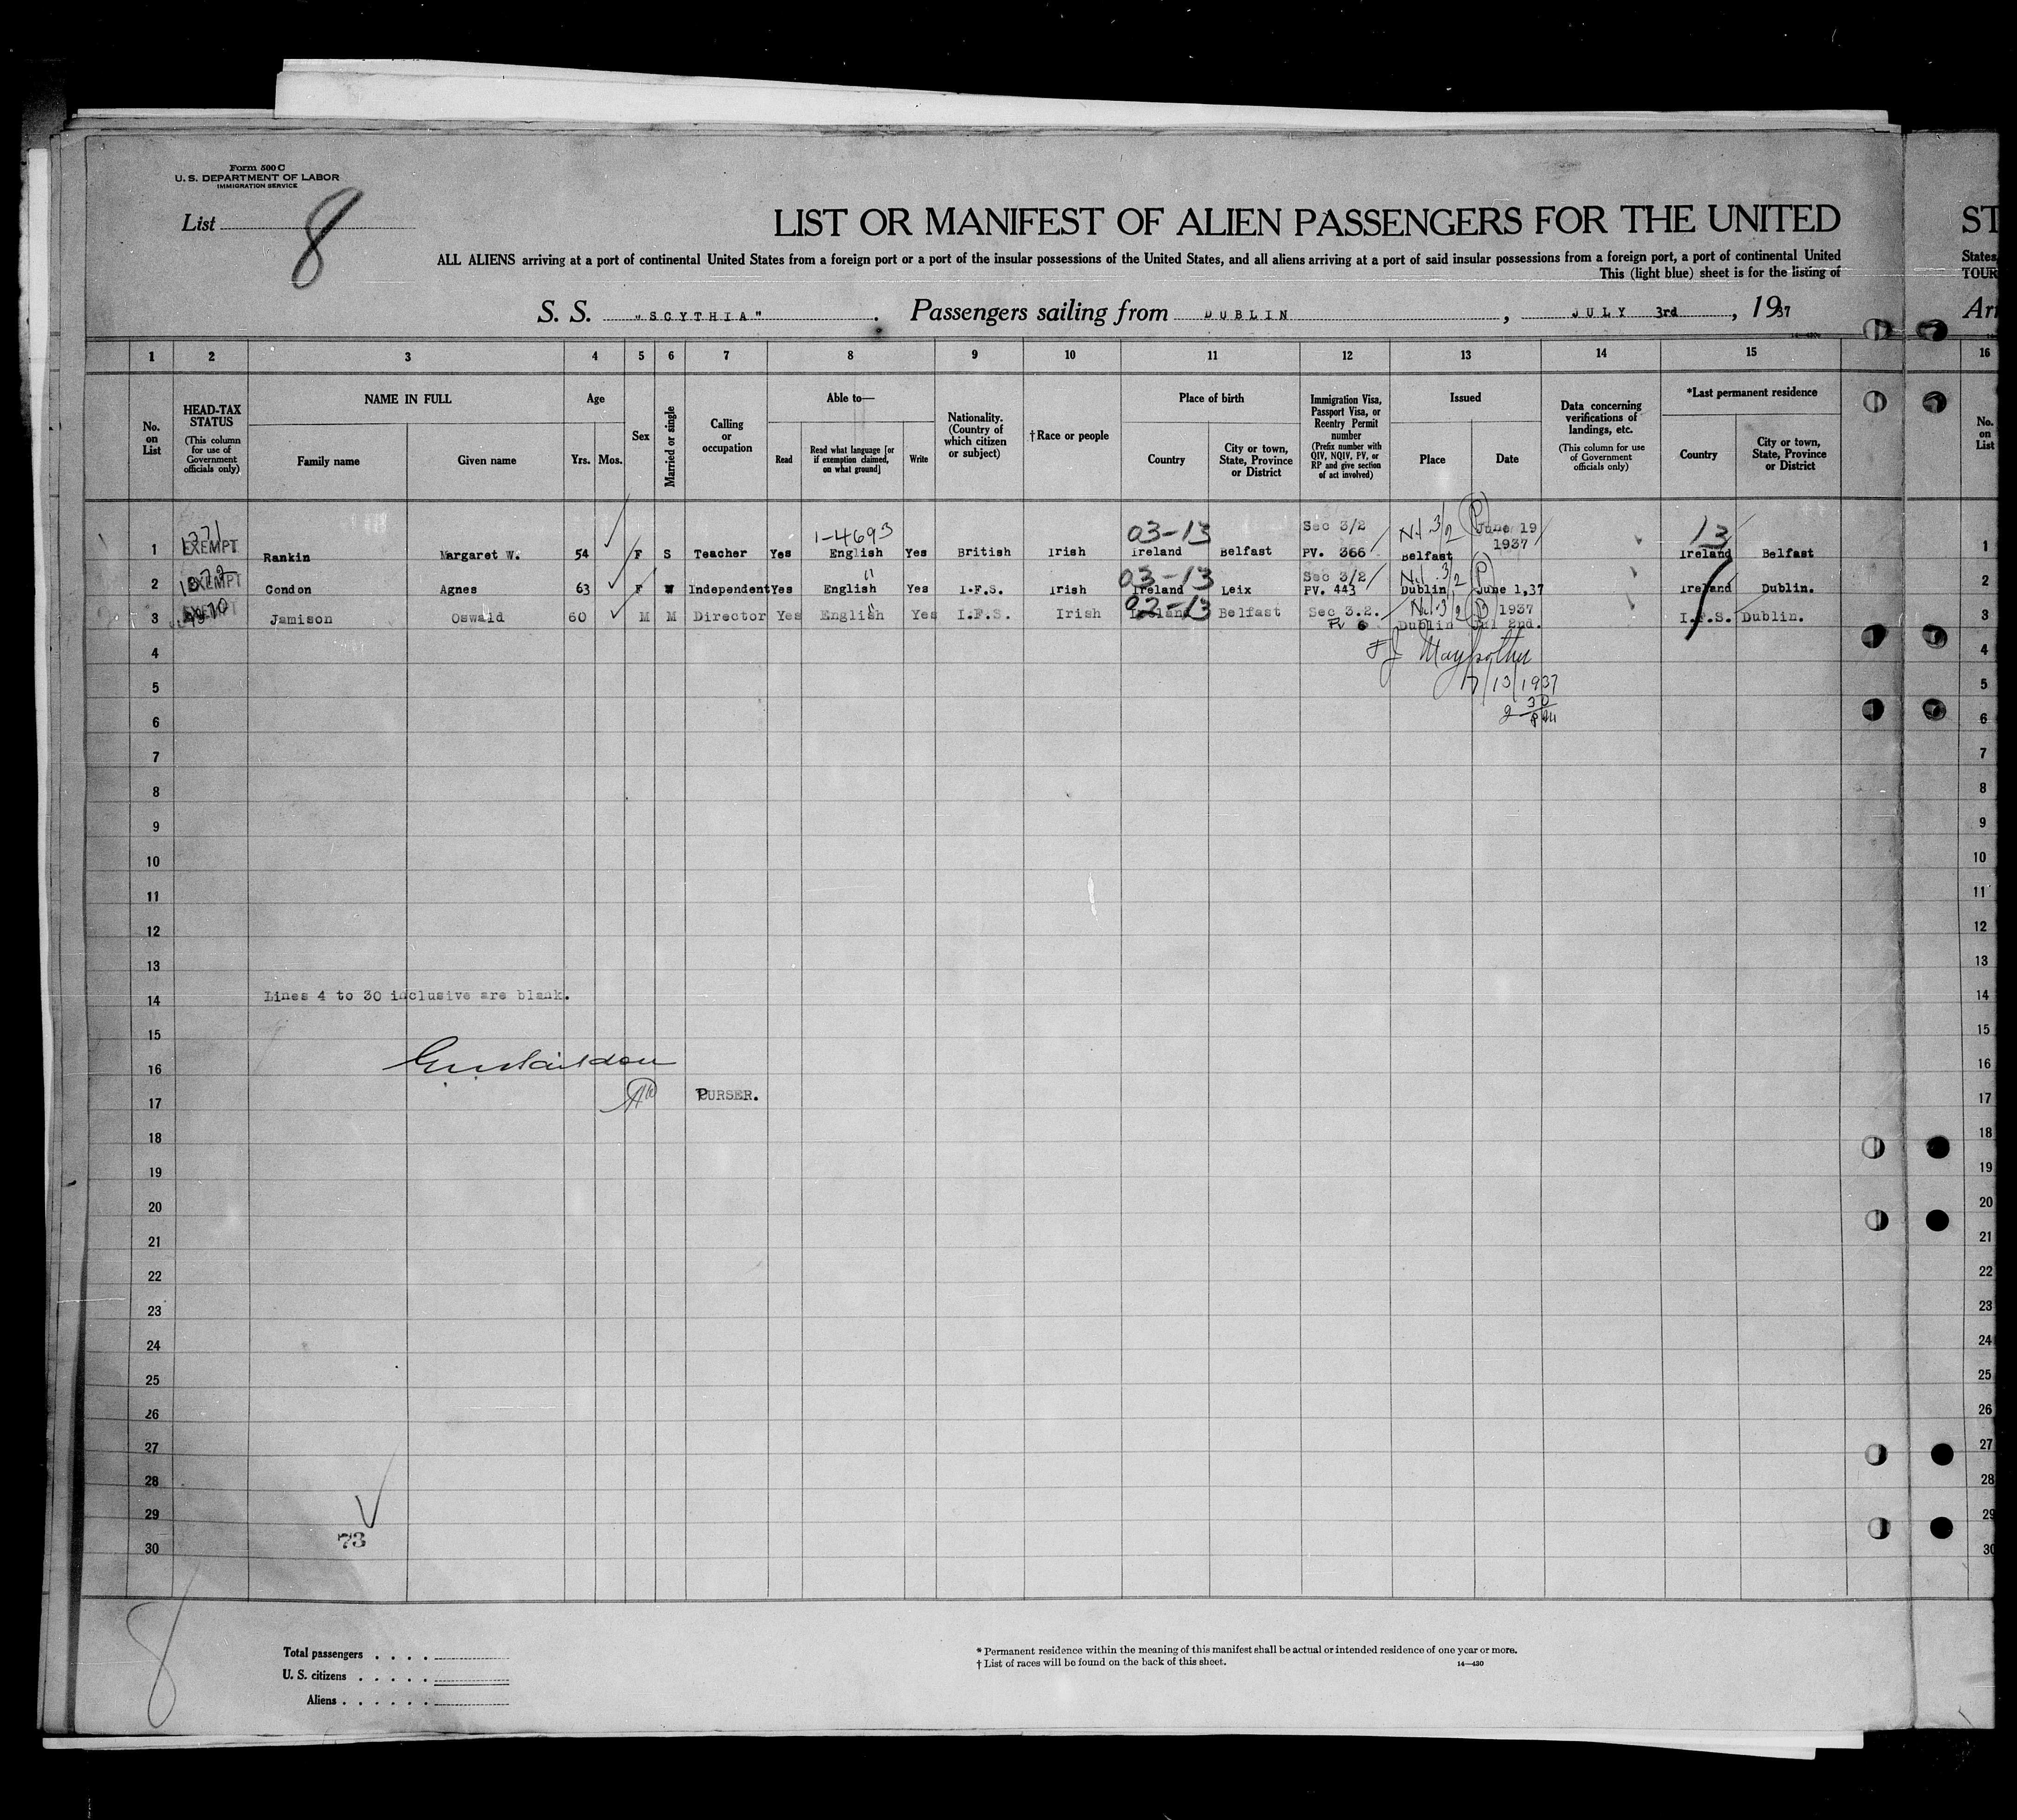 Form 500 C
U. S. DEPARTMENT OF LABOR
IMMIGRATION SERVICE
List 8
LIST OR MANIFEST OF ALIEN PASSENGERS FOR THE UNITED
ST
ALL ALIENS arriving at a port of continental United States from a foreign port or a port of the insular possessions of the United States, and all aliens arriving at a port of said insular possessions from a foreign port, a port of continental United
States
This (light blue) sheet is for the listing of
TOUR
S. S. "SCYTHIA". Passengers sailing from DUBLIN, JULY 3rd, 1937
Arr
1 2 3 4 5 6 7 8 9 10 11 12 13 14 15 16
No. on List
HEAD-TAX STATUS (This column for use of Government officials only)
NAME IN FULL
Family name Given name
Age
Yrs. Mos.
Sex
Married or single
Calling or occupation
Able to—
Read
Read what language [or if exemption claimed, on what ground]
Write
Nationality. (Country of which citizen or subject)
†Race or people
Place of birth
Country
City or town, State, Province or District
Immigration Visa, Passport Visa, or Reentry Permit number (Prefix number with QIV, NQIV, PV, or RP and give section of act involved)
Issued
Place Date
Data concerning verifications of landings, etc. (This column for use of Government officials only)
*Last permanent residence
Country
City or town, State, Province or District
No. on List
1371 1-4693 03-13 Sec 3/2 3/2 P June 19 13
1 EXEMPT Rankin Margaret W. 54 F S Teacher Yes English Yes British Irish Ireland Belfast PV. 366 Belfast 1937 Ireland Belfast 1
" 03-13 Sec 3/2 3/2 P
2 EXEMPT Condon Agnes 63 F W Independent Yes English Yes I.F.S. Irish Ireland Leix PV. 443 Dublin June 1,37 Ireland Dublin. 2
" 02-13 3/2 1937
3 EXEMPT Jamison Oswald 60 M M Director Yes English Yes I.F.S. Irish Ireland Belfast Sec 3.2. Pv 6 Dublin Jul 2nd. I.F.S. Dublin. 3
4 4
7/13/1937
5 5
2 30 PM
6 6
7 7
8 8
9 9
10 10
11 11
12 12
13 13
14 Lines 4 to 30 inclusive are blank. 14
15 15
16 16
17 PURSER. 17
18 18
19 19
20 20
21 21
22 22
23 23
24 24
25 25
26 26
27 27
28 28
29 29
73
30 30
8
Total passengers
U. S. citizens
Aliens
* Permanent residence within the meaning of this manifest shall be actual or intended residence of one year or more.
† List of races will be found on the back of this sheet. 14—430